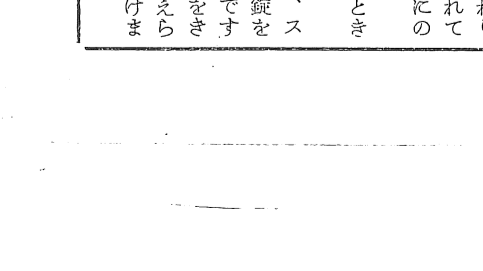 れて
にの
とき
、ス
錠を
です
をき
えら
けま